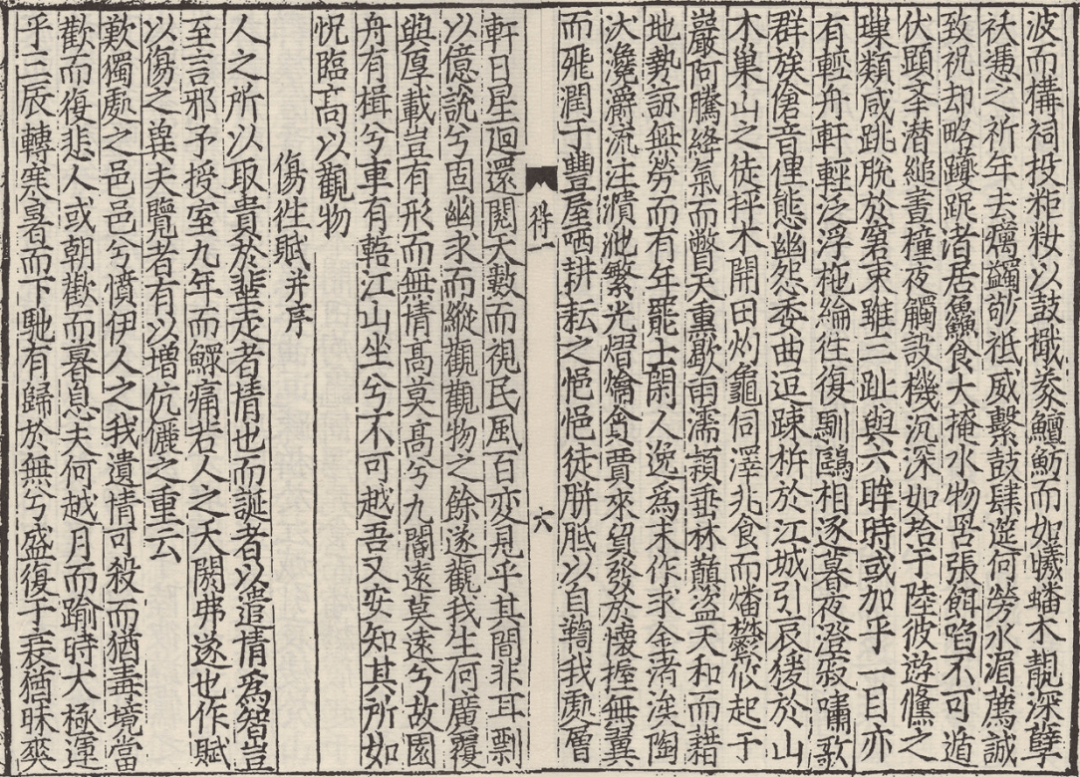 波而構祠投粔籹以鼓檝豢鱣魴而如蟻蟠木靚深孽
祅慿之祈年去癘蠲敬祗威繫鼓肆筵何勞水湄薦誠
致祝却略躨跜渚居鱻食大掩水物罟張餌啗不可遁
伏顋莘潜縋晝撞夜觸設機沉深如拾于陸彼遊儵之
瑣類咸跳脫於窘束雖三趾與六眸時或加乎一目亦
有輕舟軒輊泛浮柂綸往復馴鷗相逐暮夜澄寂嘯歌
群族傖音俚態幽怨委曲逗疎柝於江城引哀猨於山
木巢山之徒抨木開田灼龜伺澤兆食而燔欝攸起于
巖阿騰絳氣而蔽天熏歇雨濡穎垂林巔盜天和而藉
地勢諒無勞而有年罷士閑人逸爲末作求金渚涘陶
汰瀺灂流注濆池繁光熠爚貪賈來貿發於懷握無翼
而飛潤于豐屋哂耕耘之悒悒徒胼胝以自鞫我處層
一 六
軒日星廻還閱天數而視民風百変見乎其間非耳剽
以億説兮固幽求而縱觀觀物之餘遂觀我生何廣覆
與厚載豈有形而無情高莫高兮九閽遠莫遠兮故園
舟有楫兮車有轄江山坐兮不可越吾又安知其所如
怳臨高以觀物
傷往賦并序
人之所以取貴於蜚走者情也而誕者以遣情爲智豈
至言邪予授室九年而鰥痛若人之夭閼弗遂也作賦
以傷之冀夫覽者有以増伉儷之重云
歎獨處之邑邑兮憤伊人之我遺情可殺而猶毒境當
歡而復悲人或朝歡而暮息夫何越月而踰時大極運
乎三辰轉寒暑而下馳有歸於無兮盛復于衰猶昧爽